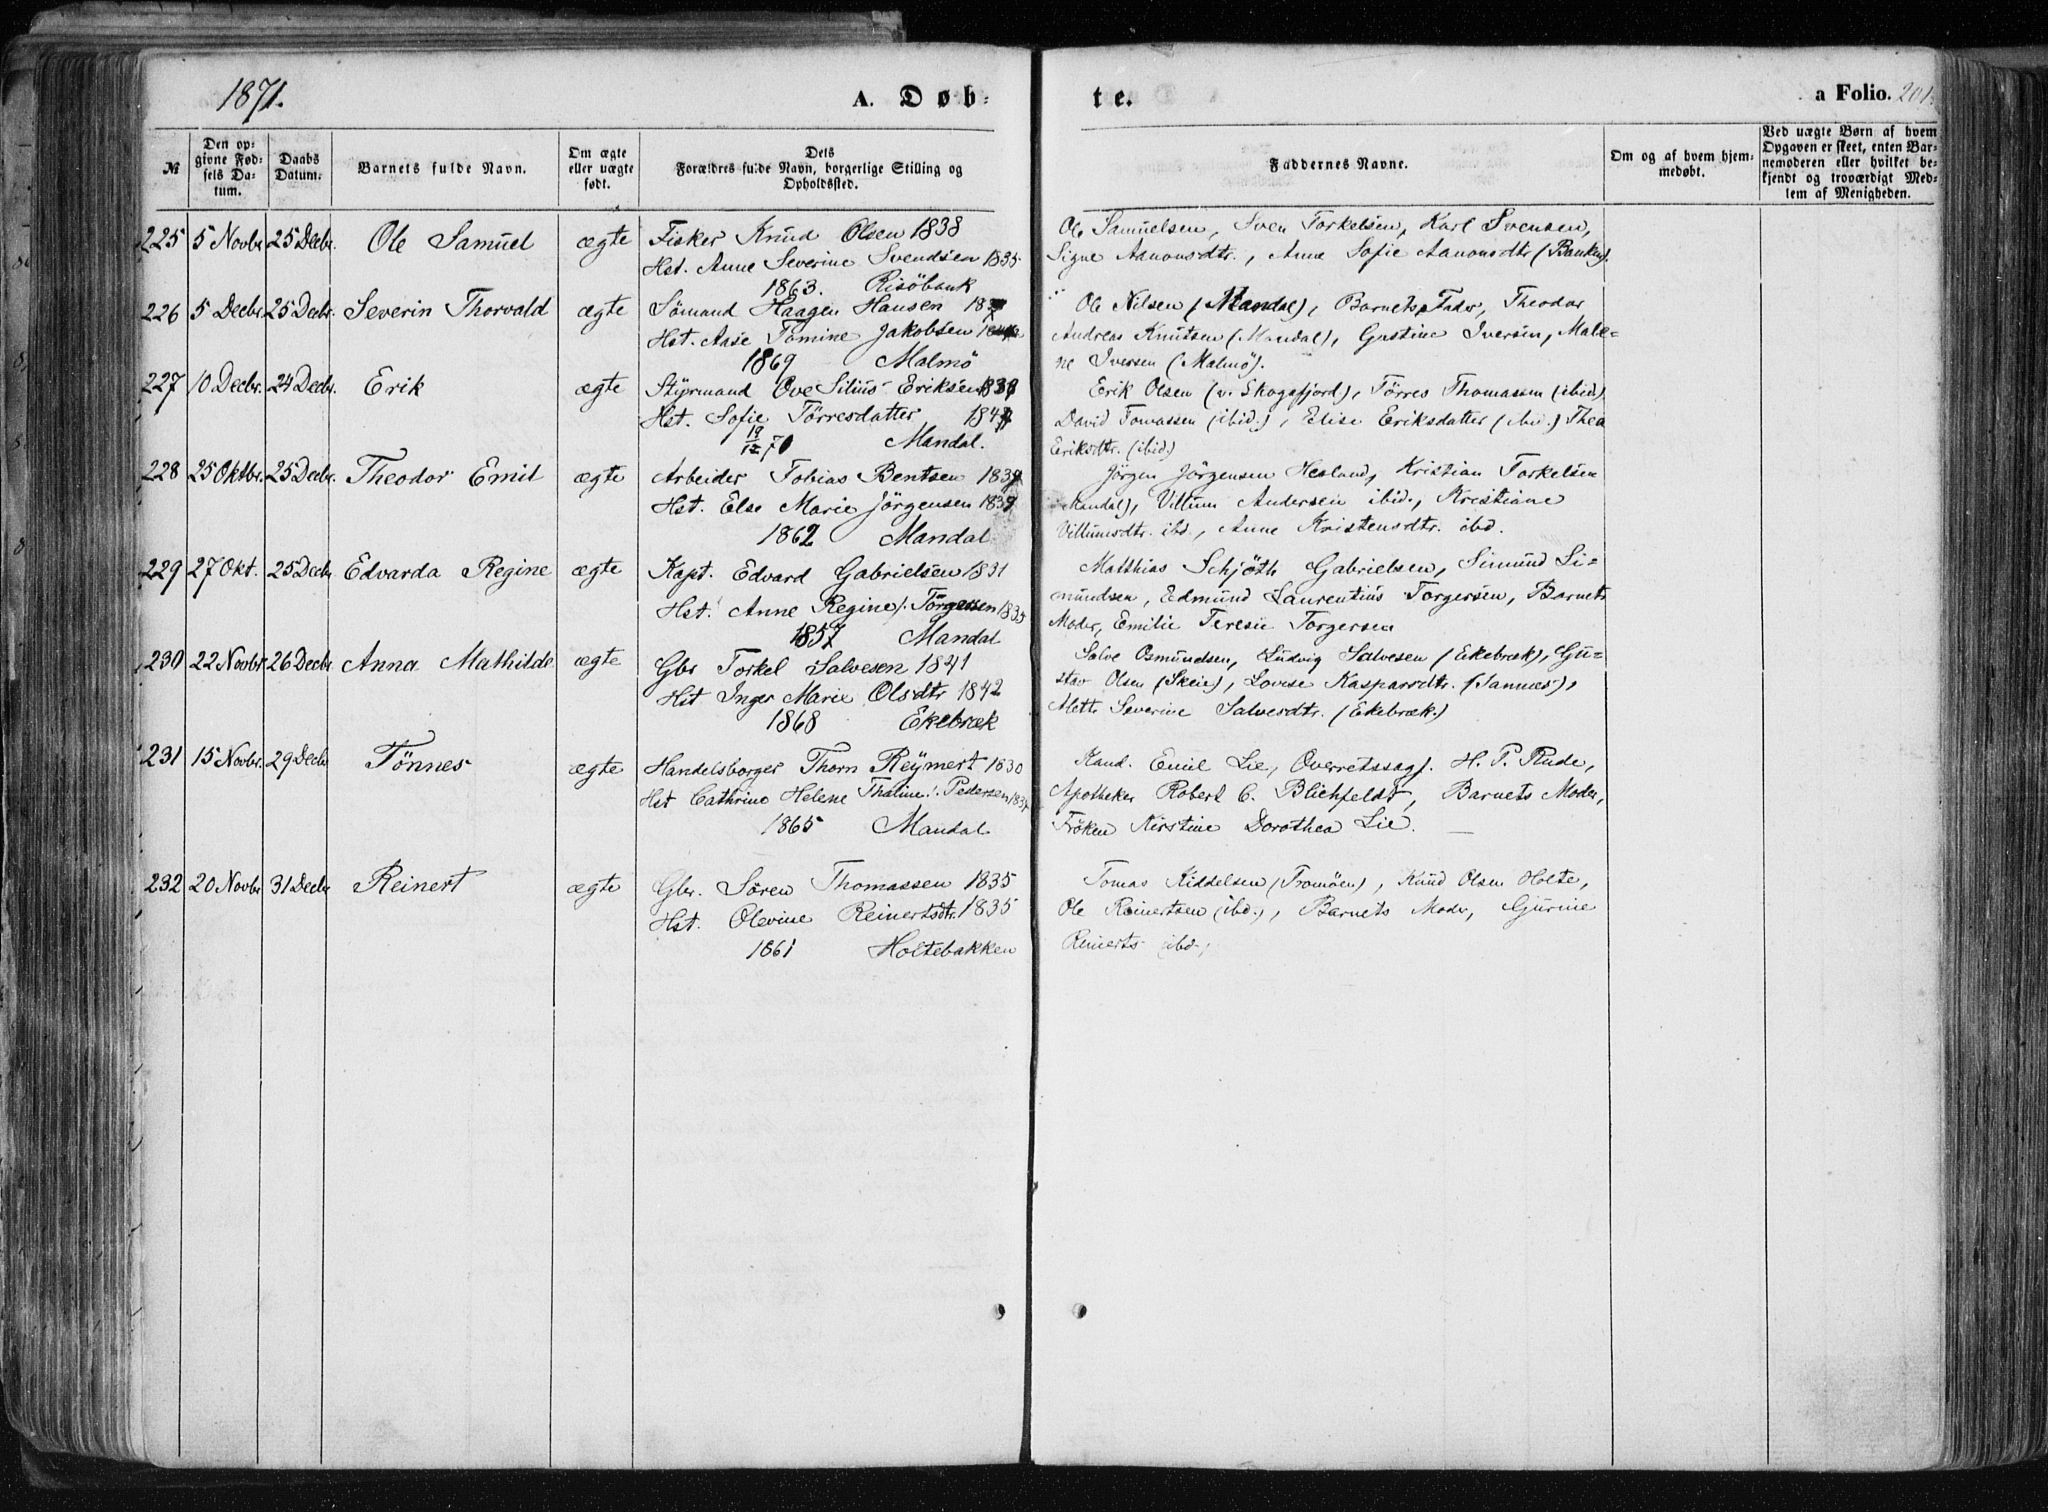 1871.
A. Døb-
te.
a Folio. 201.
№
Den op-
givne Fød-
sels Da-
tum.
Daabs
Datum.
Barnets fulde Navn.
Om ægte
eller uægte
født.
Dets
Forældres fulde Navn, borgerlige Stilling og
Opholdssted.
Faddernes Navne.
Om og af hvem hjem-
medøbt.
Ved uægte Børn af hvem
Opgaven er skeet, enten Bar-
nemoderen eller hvilket be-
kjendt og troværdigt Med-
lem af Menigheden.
225 5 Novbr. 25 Decbr. Ole Samuel ægte Fisker Knud Olsen 1838
Hst. Anne Severine Svendsen 1835
1863. Risöbank
Ole Samuelsen, Sven Torkelsen, Karl Svensen,
Signe Aanonsdtr., Anne Sofie Aanonsdtr (Banken).
226 5 Decbr. 25 Decbr. Severin Thorvald ægte Sömand Haagen Hansen
Hst. Aase Tomine Jakobsen
1869 Malmö
Ole Nilsen (Mandal), Barnets Fader, Theodor
Andreas Knutsen (Mandal), Gustine Iversen, Male-
ne Iversen (Malmö).
227 10 Decbr. 24 Decbr. Erik ægte Styrmand Ove Silius Eriksen 1838
Hst. Sofie Törresdatter
19/12 70 Mandal.
Erik Olsen (v. Skogsfjord), Törres Thomassen (ibid.)
David Tomassen (ibid.), Elise Eriksdatter (ibid.) Thea
Eriksdtr. (ibid.)
228 25 Oktbr. 25 Decbr. Theodor Emil ægte Arbeider Tobias Bentsen 1839
Hst. Else Marie Jörgensen 1839
1862 Mandal
Jörgen Jörgensen Hesland, Kristian Torkelsen
(Mandal), Villum Andersen ibid., Kristiane
Villumsdtr. ibd., Anne Kristensdtr. ibd.
229 27 Okt. 25 Decbr Edvarda Regine ægte Kapt. Edvard Gabrielsen 1831
Hst. Anne Regine f. Törgessen 1835
1857 Mandal
Matthias Schjöth Gabrielsen, Simund Si-
mundsen, Edmund Laurentius Torgersen, Barnets
Moder, Emilie Teresie Torgersen
230 22 Novbr 26 Decbr Anna Mathilde ægte Gbr Torkel Salvesen 1841
Hst Inger Marie Olsdtr 1842
1868 Ekebræk
Salve Osmundsen, Ludvig Salvesen (Ekebræk), Gu-
stav Olsen (Skeie), Lovise Kaspersdtr. (Sannes),
Mette Severine Salvesdtr. (Ekebræk.)
231 15 Novbr. 29 Decbr Tönnes ægte Handelsborger Thorn Reymert 1830
Hst Cathrine Helene Thaline f. Pedersen
1865 Mandal
Kand. Emil Lie, Overretssagf. H. P. Rude,
Apotheker Robert C. Blichfeldt, Barnets Moder,
Fröken Kirstine Dorothea Lie.
232 20 Novbr 31 Decbr Reinert ægte Gbr. Sören Thomassen 1835
Hst. Olevine Reinertsdtr. 1835
1861 Holtebakken
Tomas Kiddelsen (Tromöen), Knud Olsen Holte,
Ole Reinertsen (ibd.), Barnets Moder, Gjurine
Reinerts ibd.